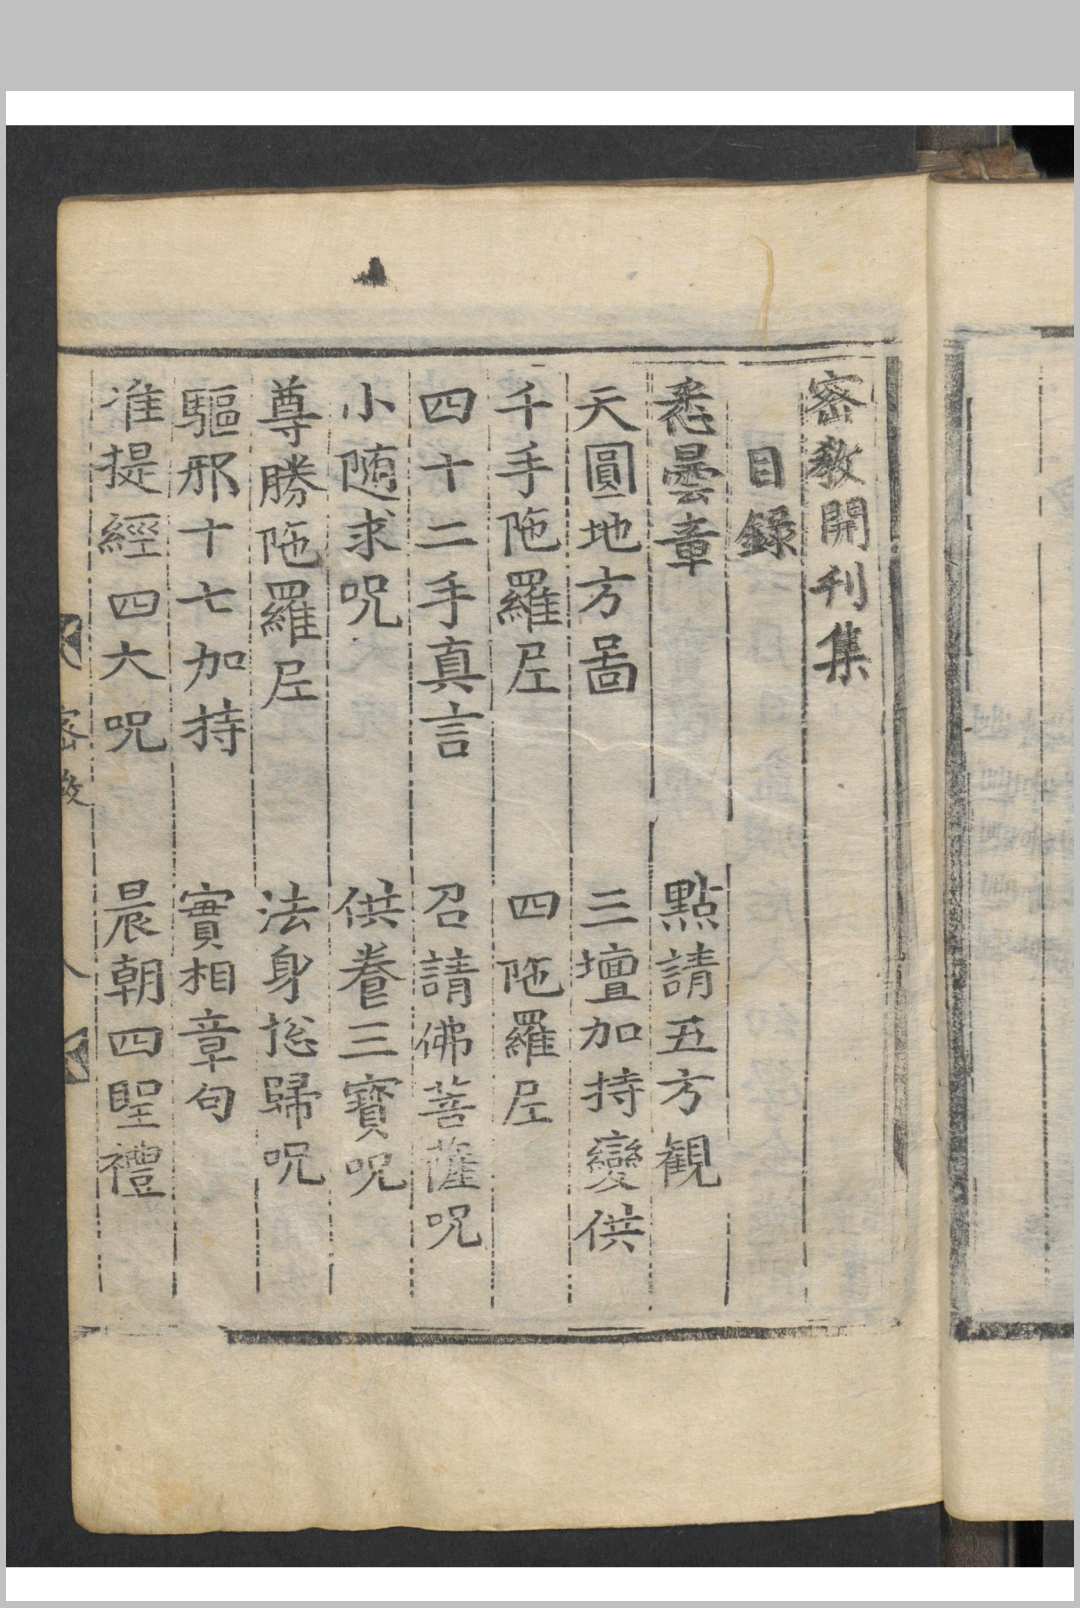 密教開刊集
目録
悉曇章 點請五方観
天圓地方啚 三壇加持變供
千手陁羅𡰱 四陁羅𡰱
四十二手真言 召請佛菩薩呪
小随求呪 供養三寶呪
尊勝陁羅𡰱 法身捴歸呪
驅邪十七加持 實相章句
准提經四大呪 晨朝四聖禮
密教
八